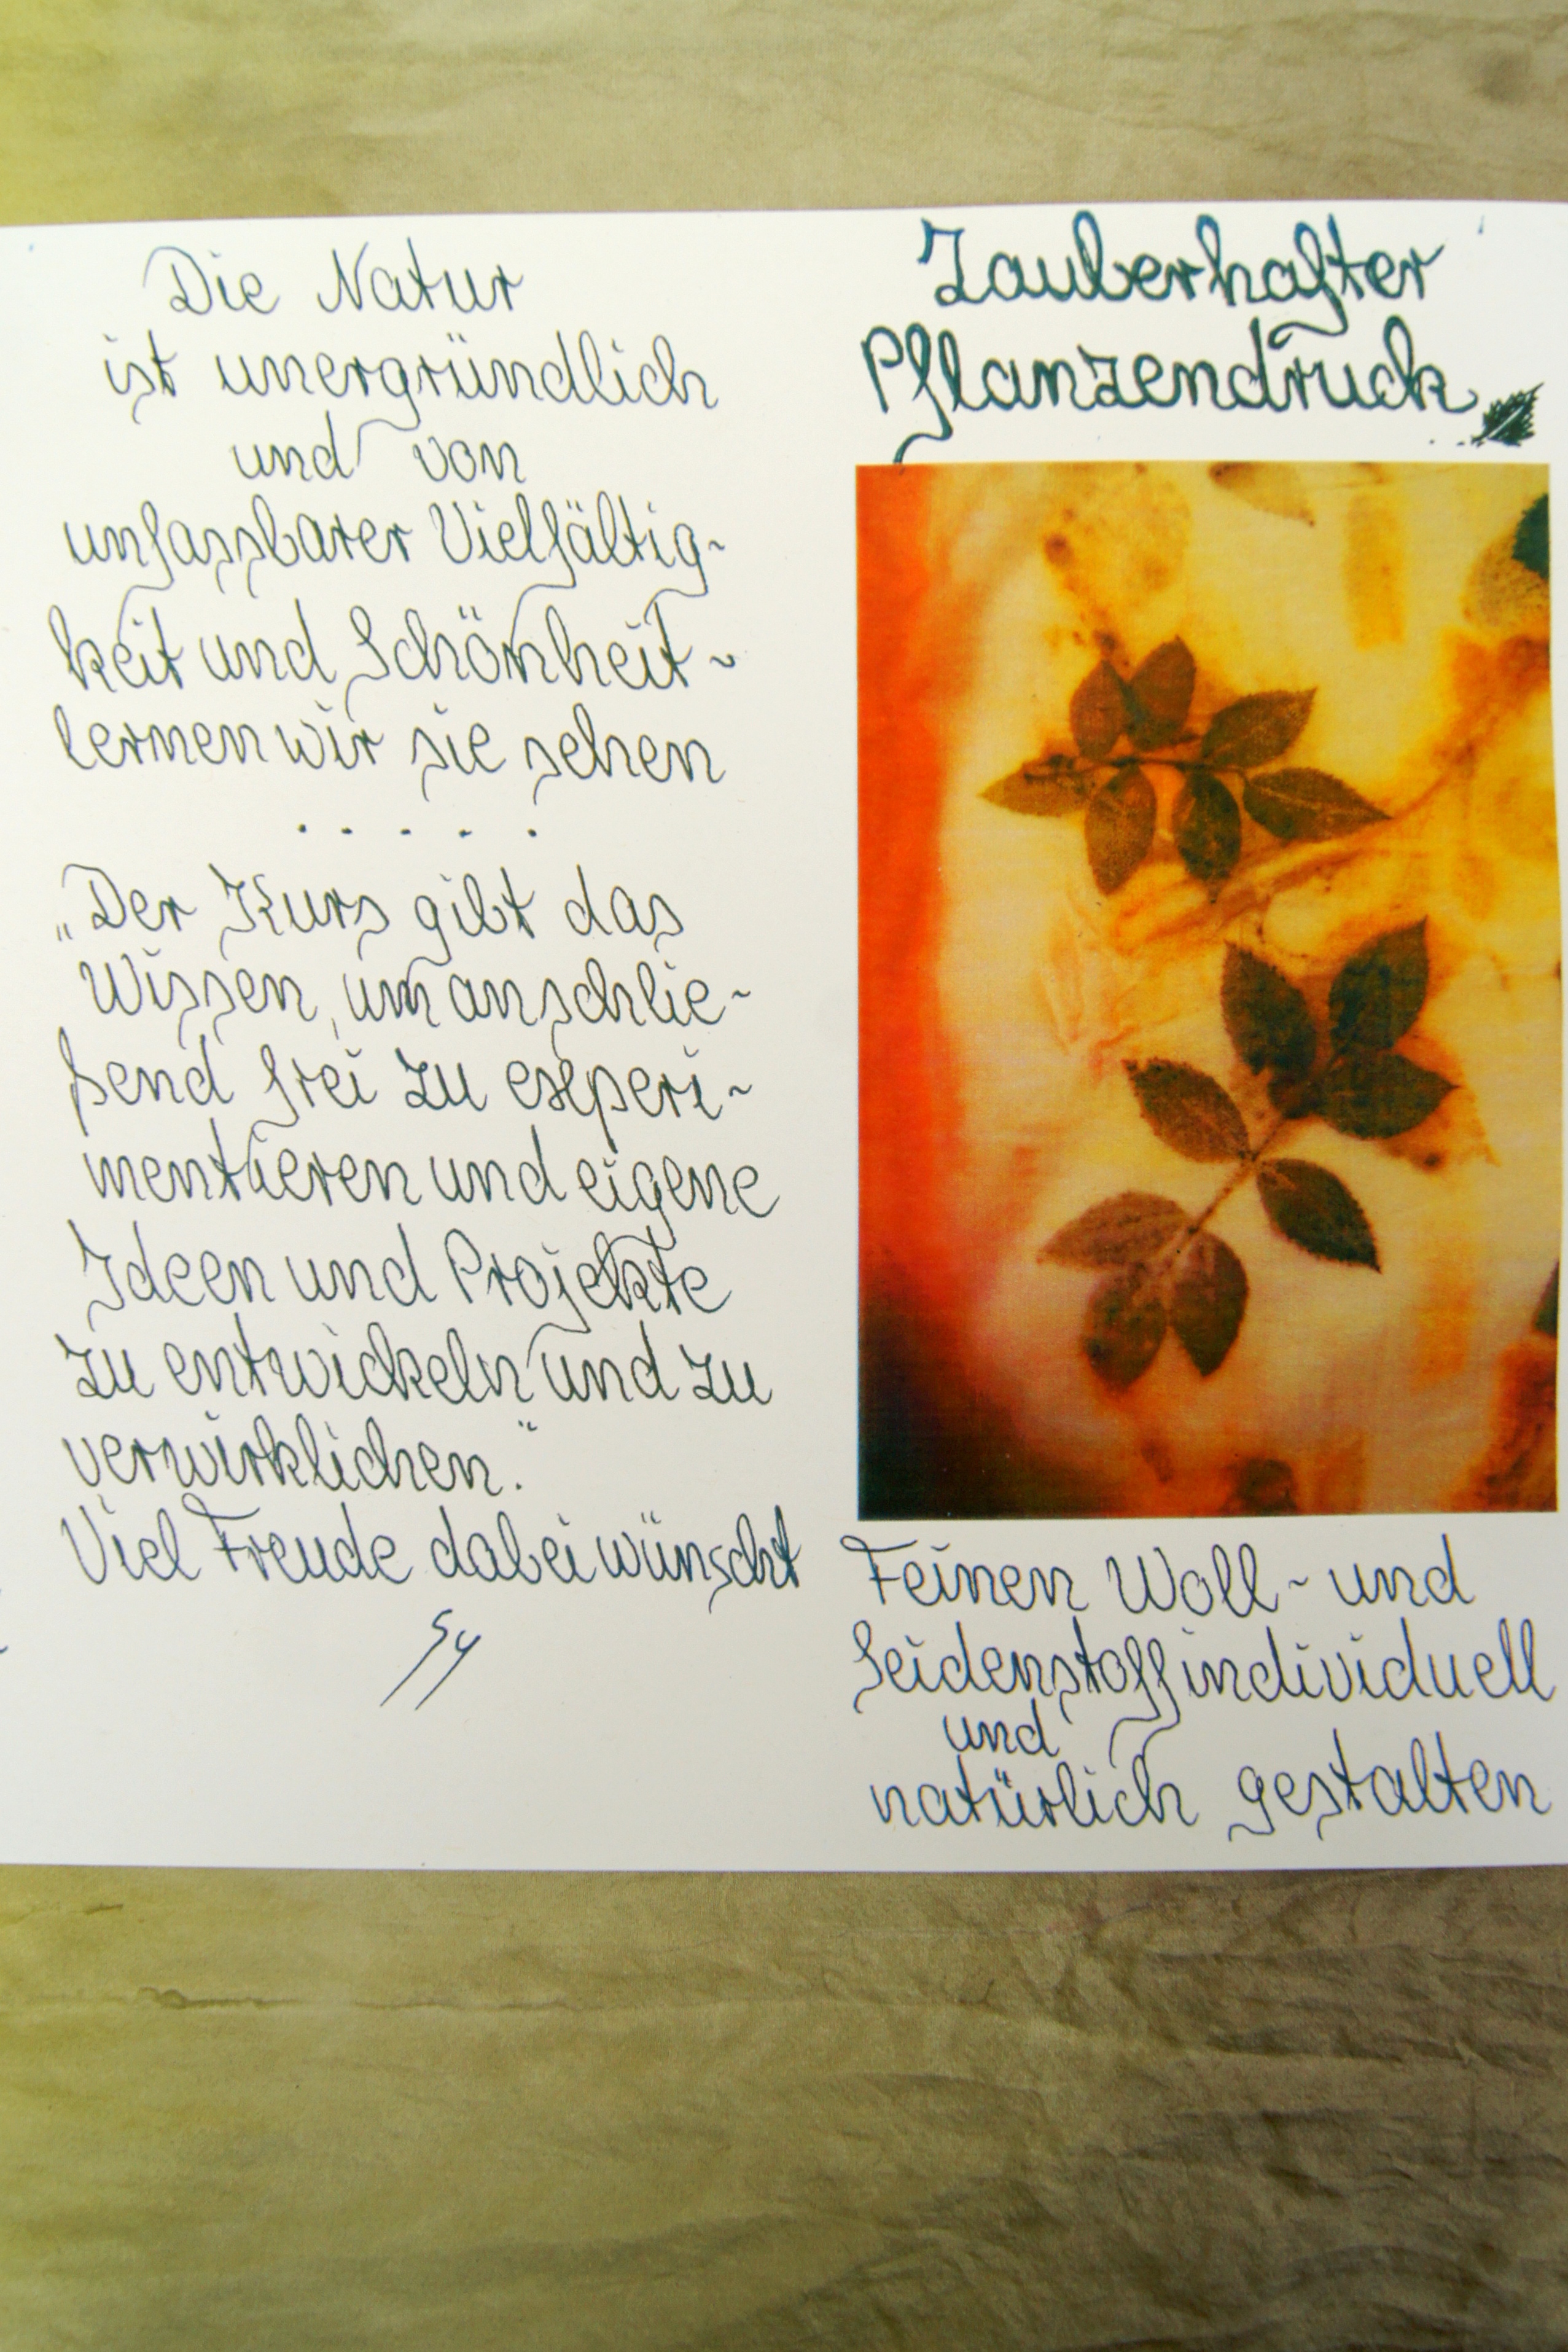 Die Natur
ist unergründlich
und von
unfassbarer Vielfältig-
keit und Schönheit -
lernen wir sie sehen
. . . . .
„Der Kurs gibt das
Wissen, um anschlie-
ßend frei zu experi-
mentieren und eigene
Ideen und Projekte
zu entwickeln und zu
verwirklichen."
Viel Freude dabei wünscht
Zauberhafter
Pflanzendruck
Feinen Woll- und
Seidenstoff individuell
und
natürlich gestalten